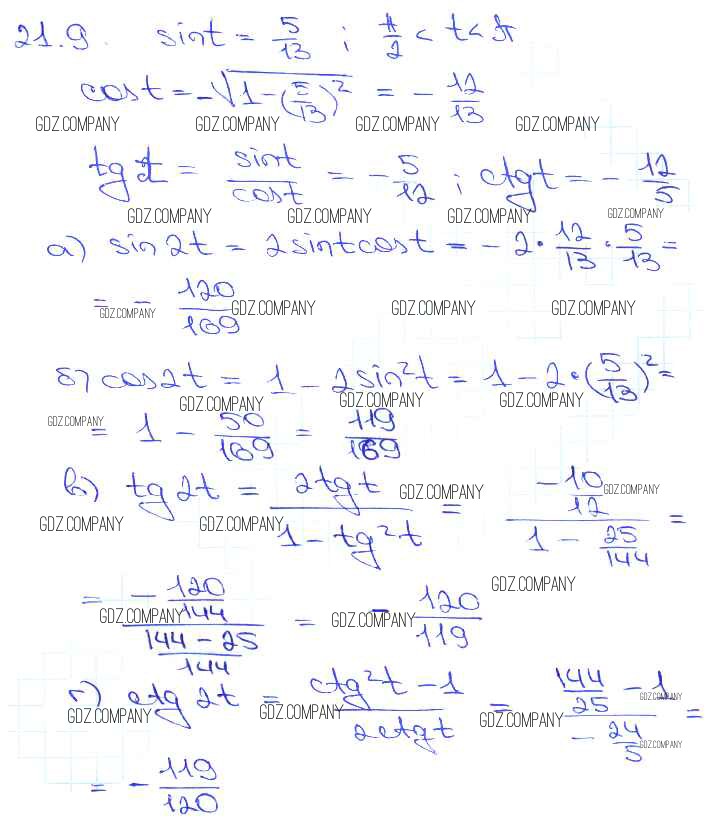 21.9. sint = 5/13 ; π/2 < t < π
cost = -√(1-(5/13)²) = - 12/13
GDZ.COMPANY GDZ.COMPANY GDZ.COMPANY GDZ.COMPANY
tgt = sint/cost = - 5/12 ; ctgt = - 12/5
GDZ.COMPANY GDZ.COMPANY GDZ.COMPANY GDZ.COMPANY
а) sin2t = 2sintcost = -2·12/13·5/13 =
= - 120/169
GDZ.COMPANY GDZ.COMPANY GDZ.COMPANY GDZ.COMPANY
б) cos2t = 1 - 2sin²t = 1-2·(5/13)² =
GDZ.COMPANY GDZ.COMPANY GDZ.COMPANY
GDZ.COMPANY
= 1 - 50/169 = 119/169
в) tg2t = 2tgt/(1-tg²t) = (-10/12)/(1 - 25/144) =
GDZ.COMPANY GDZ.COMPANY
GDZ.COMPANY GDZ.COMPANY
GDZ.COMPANY
= (-120/144)/((144-25)/144) = - 120/119
GDZ.COMPANY GDZ.COMPANY
г) ctg2t = (ctg²t-1)/(2ctgt) = (144/25 - 1)/(- 24/5) =
GDZ.COMPANY
GDZ.COMPANY GDZ.COMPANY GDZ.COMPANY
GDZ.COMPANY
= - 119/120